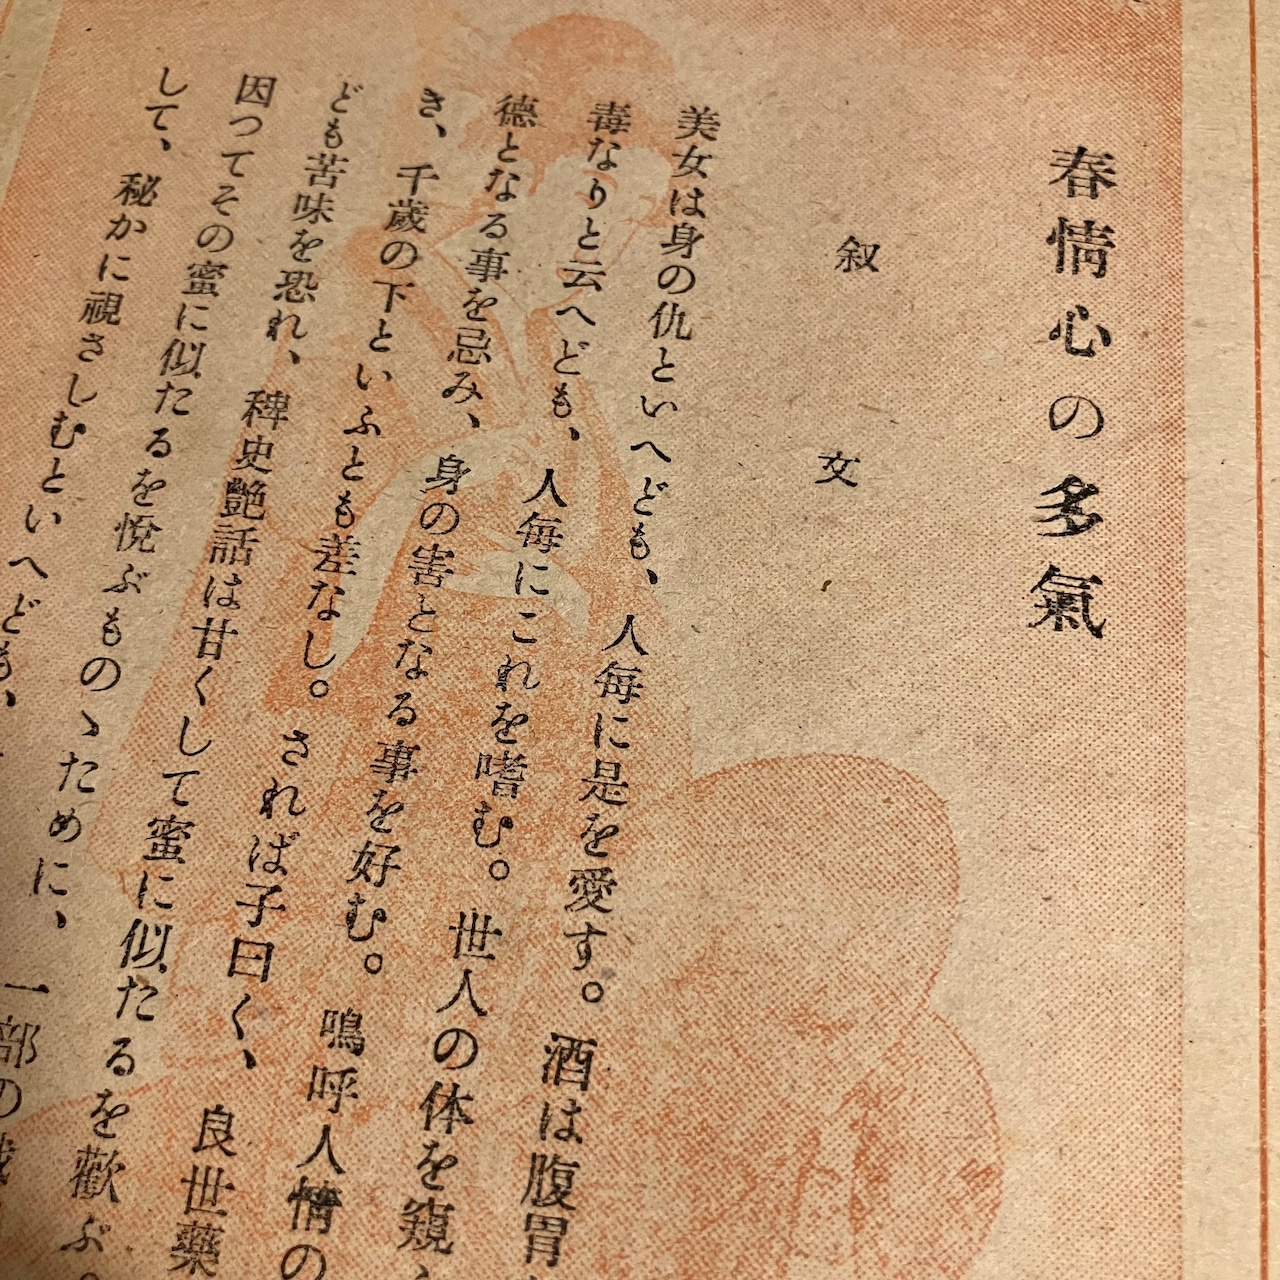 春情心の多氣
叙文
美女は身の仇といへども、人每に是を愛す。酒は腹胃
毒なりと云へども、人每にこれを嗜む。世人の体を窺
德となる事を忌み、身の害となる事を好む。嗚呼人情の
き、千歲の下といふとも差なし。されば子曰く、良世藥
ども苦味を恐れ、稗史艶話は甘くして蜜に似たるを歡ぶ。
因つてその蜜に似たるを悅ぶものゝために、一部の
して、秘かに視さしむといへども、